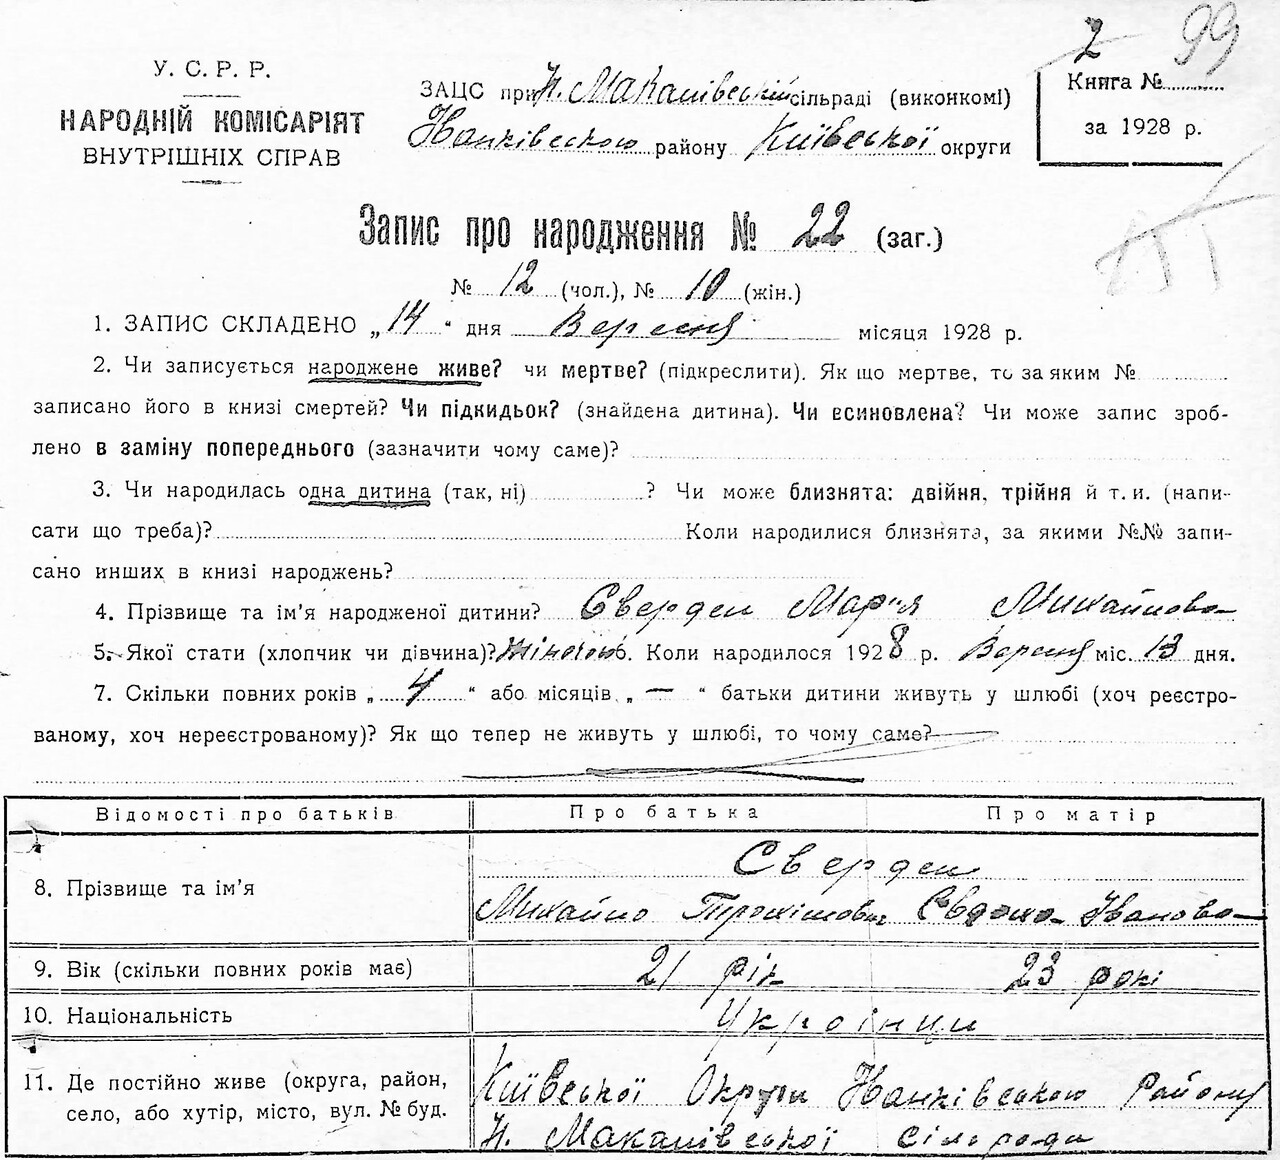 2 99
У. С. Р. Р.
НАРОДНІЙ КОМІСАРІЯТ
ВНУТРІШНІХ СПРАВ
ЗАЦС при Н. Макалівській сільраді (виконкомі)
району Київської округи
Книга №
за 1928 р.
Запис про народження № 22 (заг.)
№ 12 (чол.), № 10 (жін.)
1. ЗАПИС СКЛАДЕНО „14“ дня Вересня місяця 1928 р.
2. Чи записується народжене живе? чи мертве? (підкреслити). Як що мертве, то за яким №
записано його в книзі смертей? Чи підкидьок? (знайдена дитина). Чи всиновлена? Чи може запис зроб-
лено в заміну попереднього (зазначити чому саме)?
3. Чи народилась одна дитина (так, ні) ? Чи може близнята: двійня, трійня й т. и. (напи-
сати що треба)? Коли народилися близнята, за якими №№ запи-
сано инших в книзі народжень?
4. Прізвище та ім’я народженої дитини? Сверден Марія Михайлова
5. Якої стати (хлопчик чи дівчина)? Жіночої 6. Коли народилося 1928 р. Вересня міс. 13 дня.
7. Скільки повних років „4“ або місяців „—“ батьки дитини живуть у шлюбі (хоч реєстро-
ваному, хоч нереєстрованому)? Як що тепер не живуть у шлюбі, то чому саме?
Відомості про батьків Про батька Про матір
8. Прізвище та ім’я Сверден
Михайло Трохимович Євдоха Іванова
9. Вік (скільки повних років має) 21 рік 23 рокі
10. Національність Українци
11. Де постійно живе (округа, район,
село, або хутір, місто, вул. № буд.
Київської Округи Району
Н. Макалівської сільради